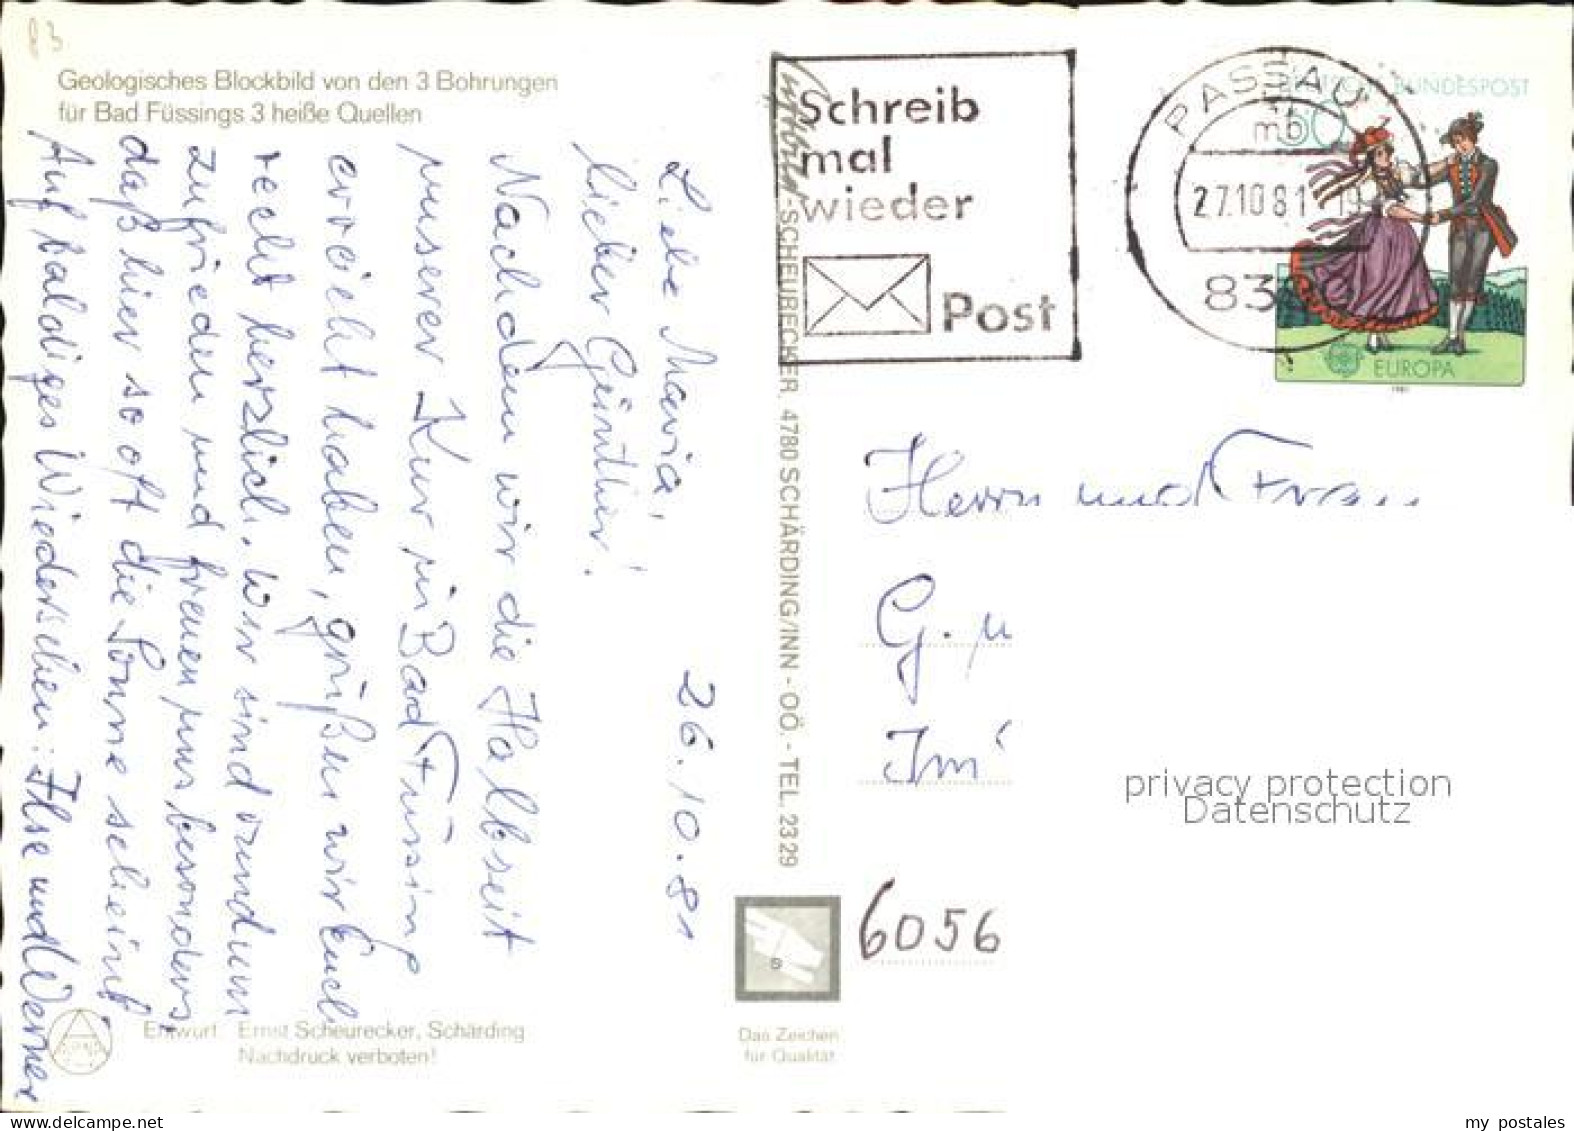 83
Geologisches Blockbild von den 3 Bohrungen
für Bad Füssings 3 heiße Quellen
26.10.81
Liebe Maria,
lieber Günther!
Nachdem wir die Halbzeit
unserer Kur in Bad Füssing
erreicht haben, grüßen wir Euch
recht herzlich. Wir sind rundum
zufrieden und freuen uns besonders,
daß hier so oft die Sonne scheint.
Auf baldiges Wiedersehen: Ilse und Werner
Entwurf: Ernst Scheurecker, Schärding
Nachdruck verboten!
-SCHEUBECKER, 4780 SCHÄRDING/INN - OÖ. - TEL. 2329
Das Zeichen
für Qualität
Schreib
mal
wieder
Post
PASSAU
mb
27.10.81-19
83
DEUTSCHE BUNDESPOST
60
EUROPA
1981
Herrn und Frau
G. u
Im
6056
privacy protection
Datenschutz
www.delcampe.net
my postales